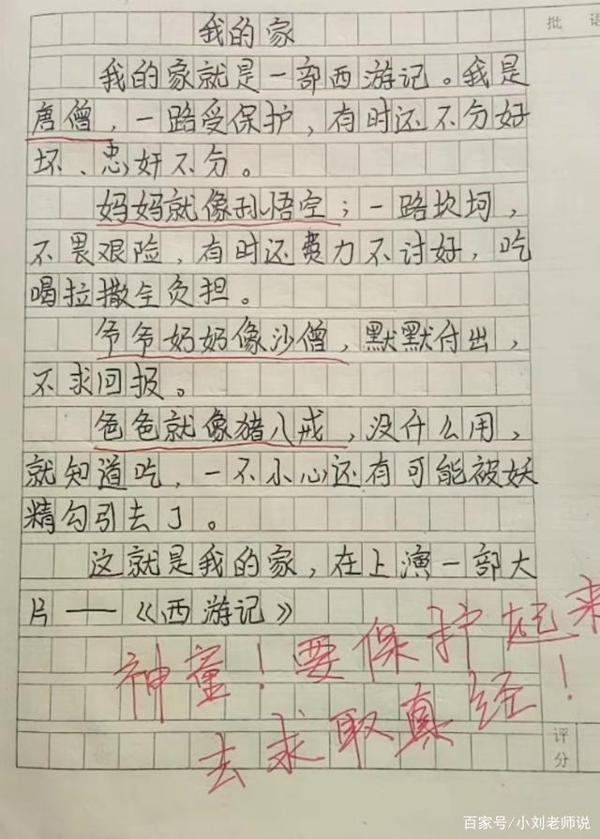 批 语
我的家
我的家就是一部西游记。我是
唐僧，一路受保护，有时还不分好
坏、忠奸不分。
妈妈就像孙悟空；一路坎坷，
不畏艰险，有时还费力不讨好，吃
喝拉撒全负担。
爷爷奶奶像沙僧，默默付出，
不求回报。
爸爸就像猪八戒，没什么用，
就知道吃，一不小心还有可能被妖
精勾引去了。
这就是我的家，在上演一部大
片——《西游记》
神童！要保护起来
去求取真经！
评分
百家号/小刘老师说